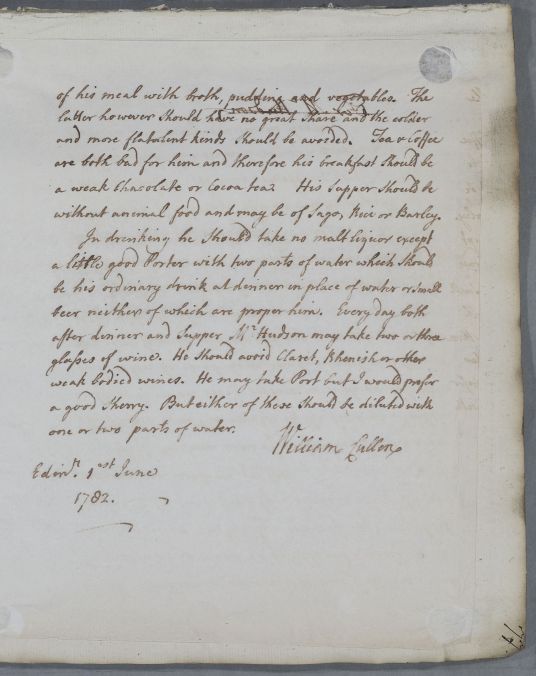 of his meal with broth, pudding and vegetables. The
latter however should have no great share and the colder
and more flatulent kinds should be avoided. Tea & Coffee
are both bad for him and therefore his breakfast should be
a weak Chacolate or Cocoa tea. His Supper should be
without animal food and may be of Sago, Rice or Barley.
In drinking he should take no malt liquor except
a little good Porter with two parts of water which should
be his ordinary drink at dinner in place of water or small
beer neither of which are proper him. Every day both
after dinner and Supper Mr Hudson may take two or three
glasses of wine. He should avoid Claret, Rhenish or other
weak bodied wines. He may take Port but I would prefer
a good Sherry. But either of these should be diluted with
one or two parts of water.
William Cullen
Edinr. 1st June
1782.